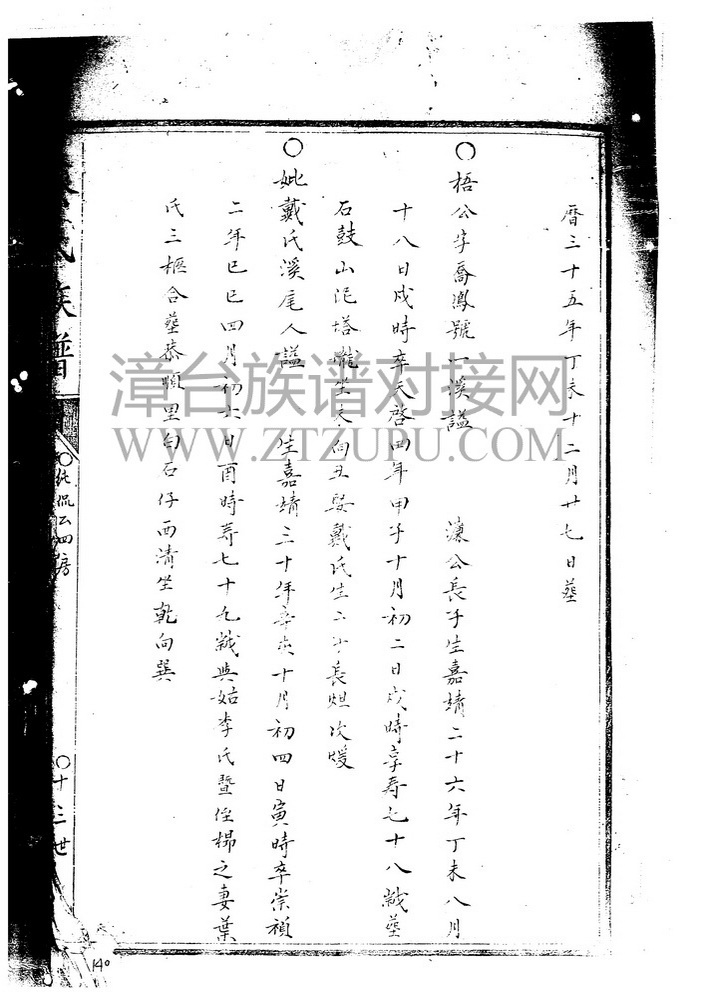 曆三十五年丁未十二月廿七日塟
○梧公字喬鳳號一溪謚 濂公長子生嘉靖二十六年丁未八月
十八日戌時卒天啓四年甲子十月初二日戌時享寿七十八歲塟
石鼓山泥塔隴坐未向丑娶戴氏生二子長炟次煖
○妣戴氏溪尾人謚 生嘉靖三十年辛亥十月初四日寅時卒崇禎
二年己巳四月初六日酉時寿七十九歲與姑李氏暨侄楊之妻葉
氏三柩合塟恭順里白石仔西清坐乾向巽
氏族譜
○純侃公四房
○十三世
140
漳台族谱对接网
WWW.ZTZUPU.COM